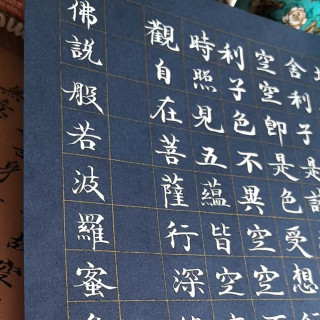 佛說般若波羅蜜
觀自在菩薩行深
時照見五蘊皆空
利子色不異空空
空空即是色受想
舍利子是